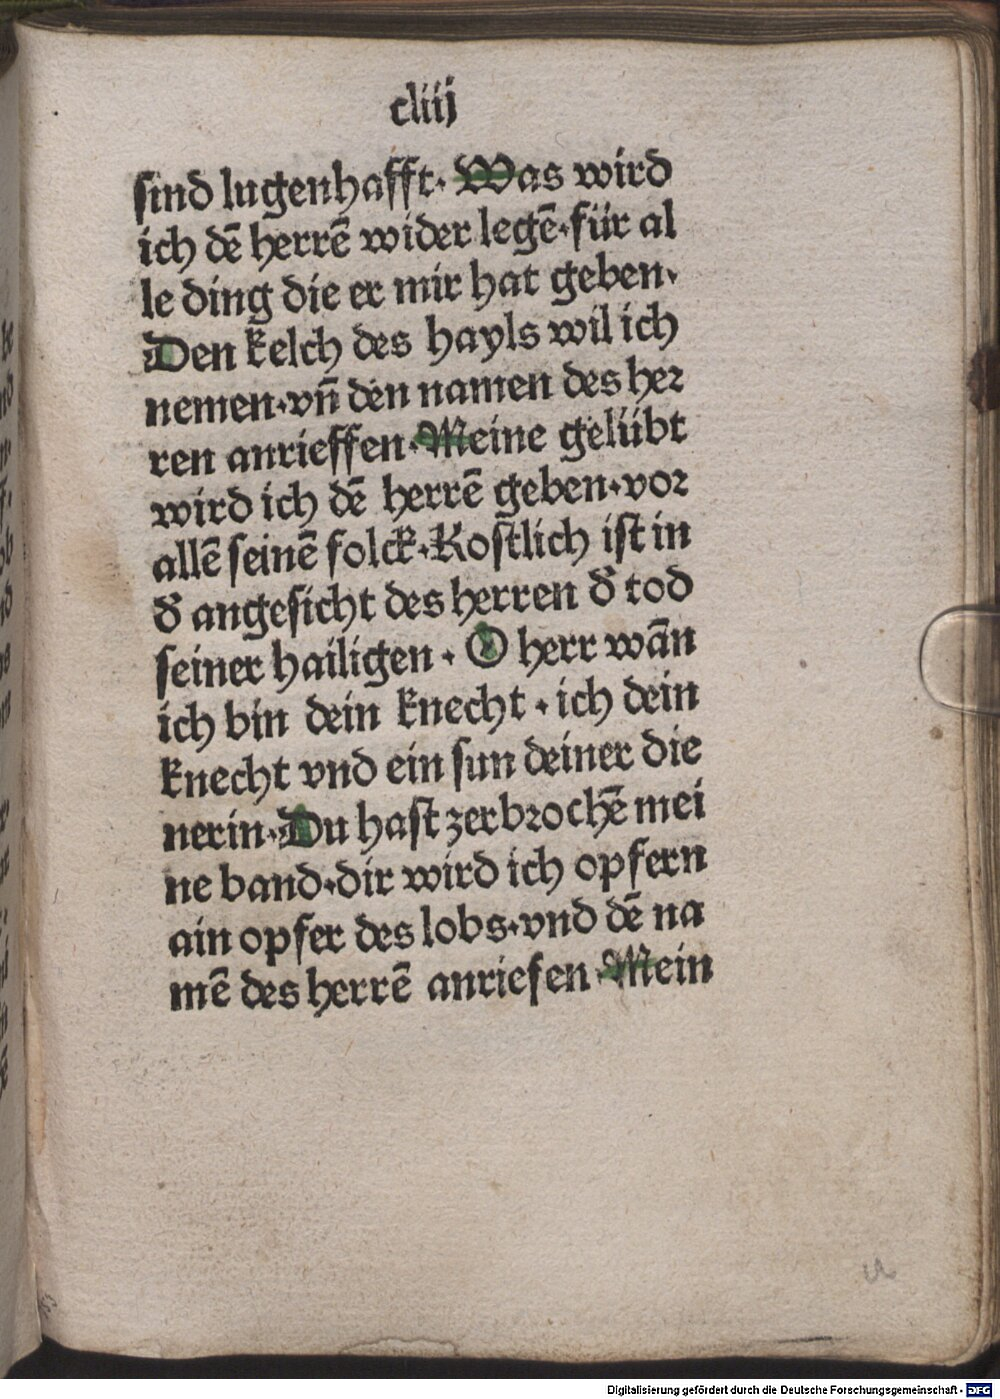 cliij
sind lugenhafft· Was wird
ich dē herrē wider legē·für al
le ding die er mir hat geben·
Den kelch des hayls wil ich
nemen·vn̄ den namen des her
ren anrieffen·Meine gelübt
wird ich dē herrē geben·vor
allē seinē folck·Kostlich ist in
d̄ angesicht des herren d̄ tod
seiner hailigen· O herr wān
ich bin dein knecht·ich dein
knecht vnd ein sun deiner die
nerin·Du hast zerbrochē mei
ne band·dir wird ich opfern
ain opfer des lobs·vnd dē na
mē des herrē anriefen·Mein
Digitalisierung gefördert durch die Deutsche Forschungsgemeinschaft - DFG